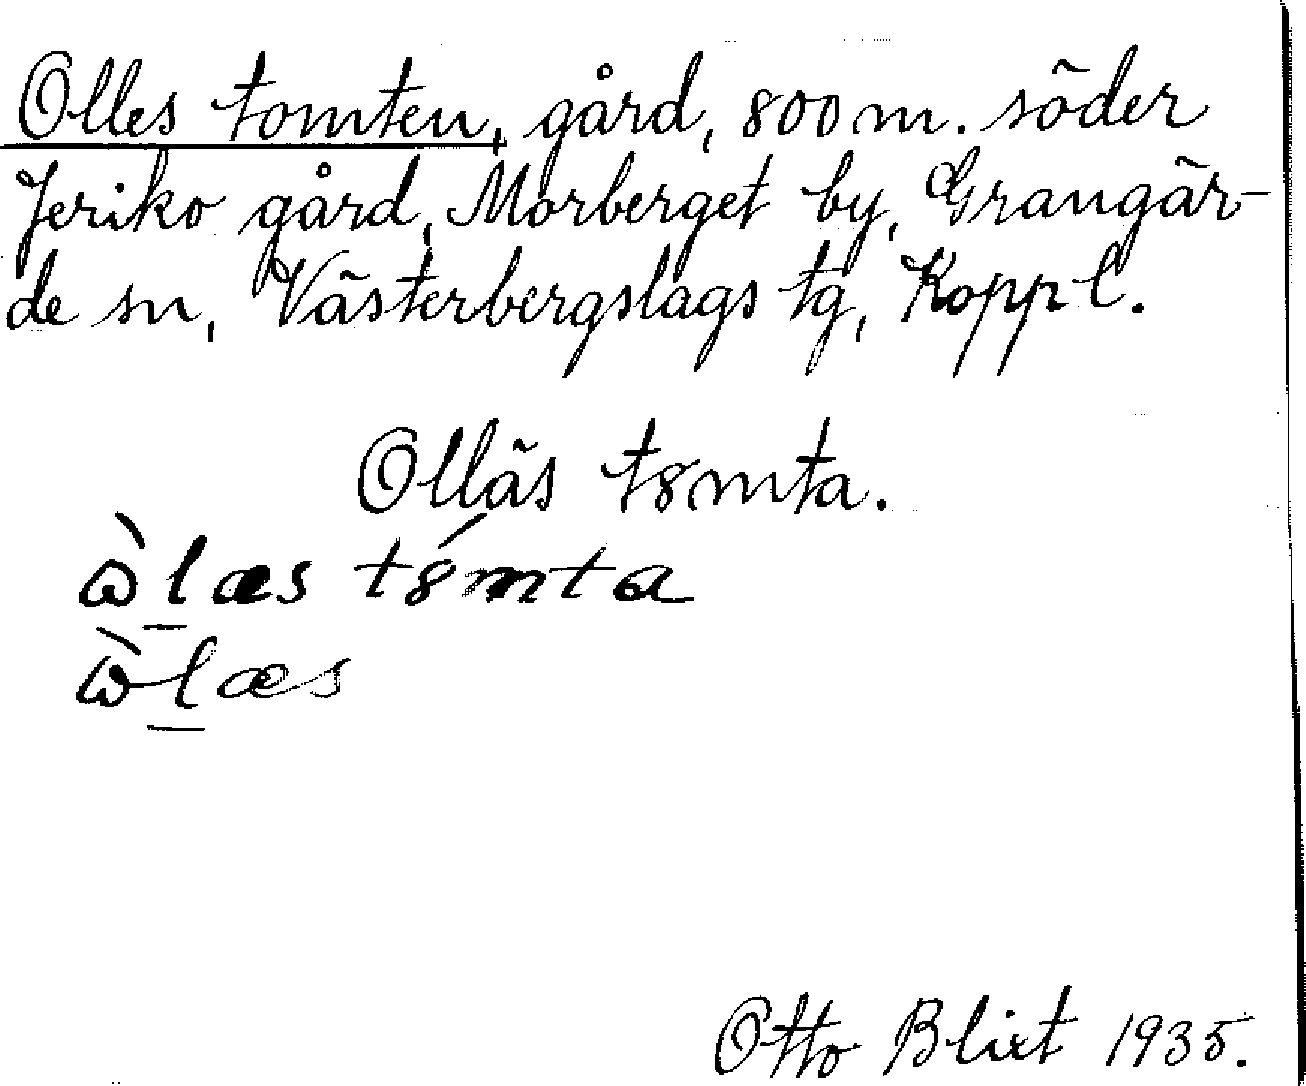 Olles tomten, gård, 800 m. söder
Jeriko gård, Morberget by, Grangär-
de sn, Västerbergslags tg, Kopp l.
Olläs t8mta.
ὼl̲æs t8́mta
ὼl̲æs
Otto Blixt 1935.